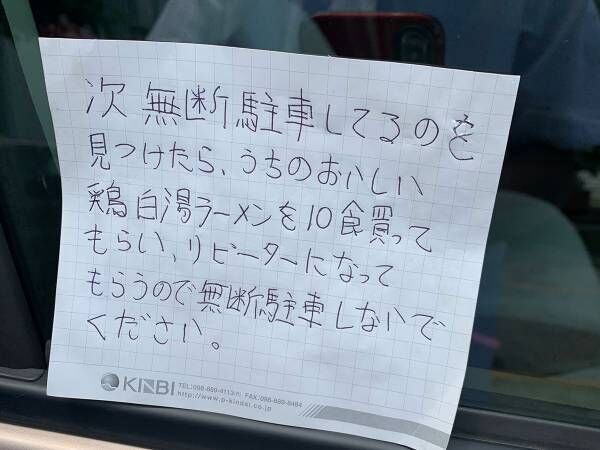 次 無断駐車してるのを
見つけたら、うちのおいしい
鶏白湯ラーメンを10食買って
もらい、リピーターになって
もらうので無断駐車しないで
ください。
KINBI
TEL:098-889-4113㈹ FAX:098-889-8484
http://www.p-kinbi.co.jp